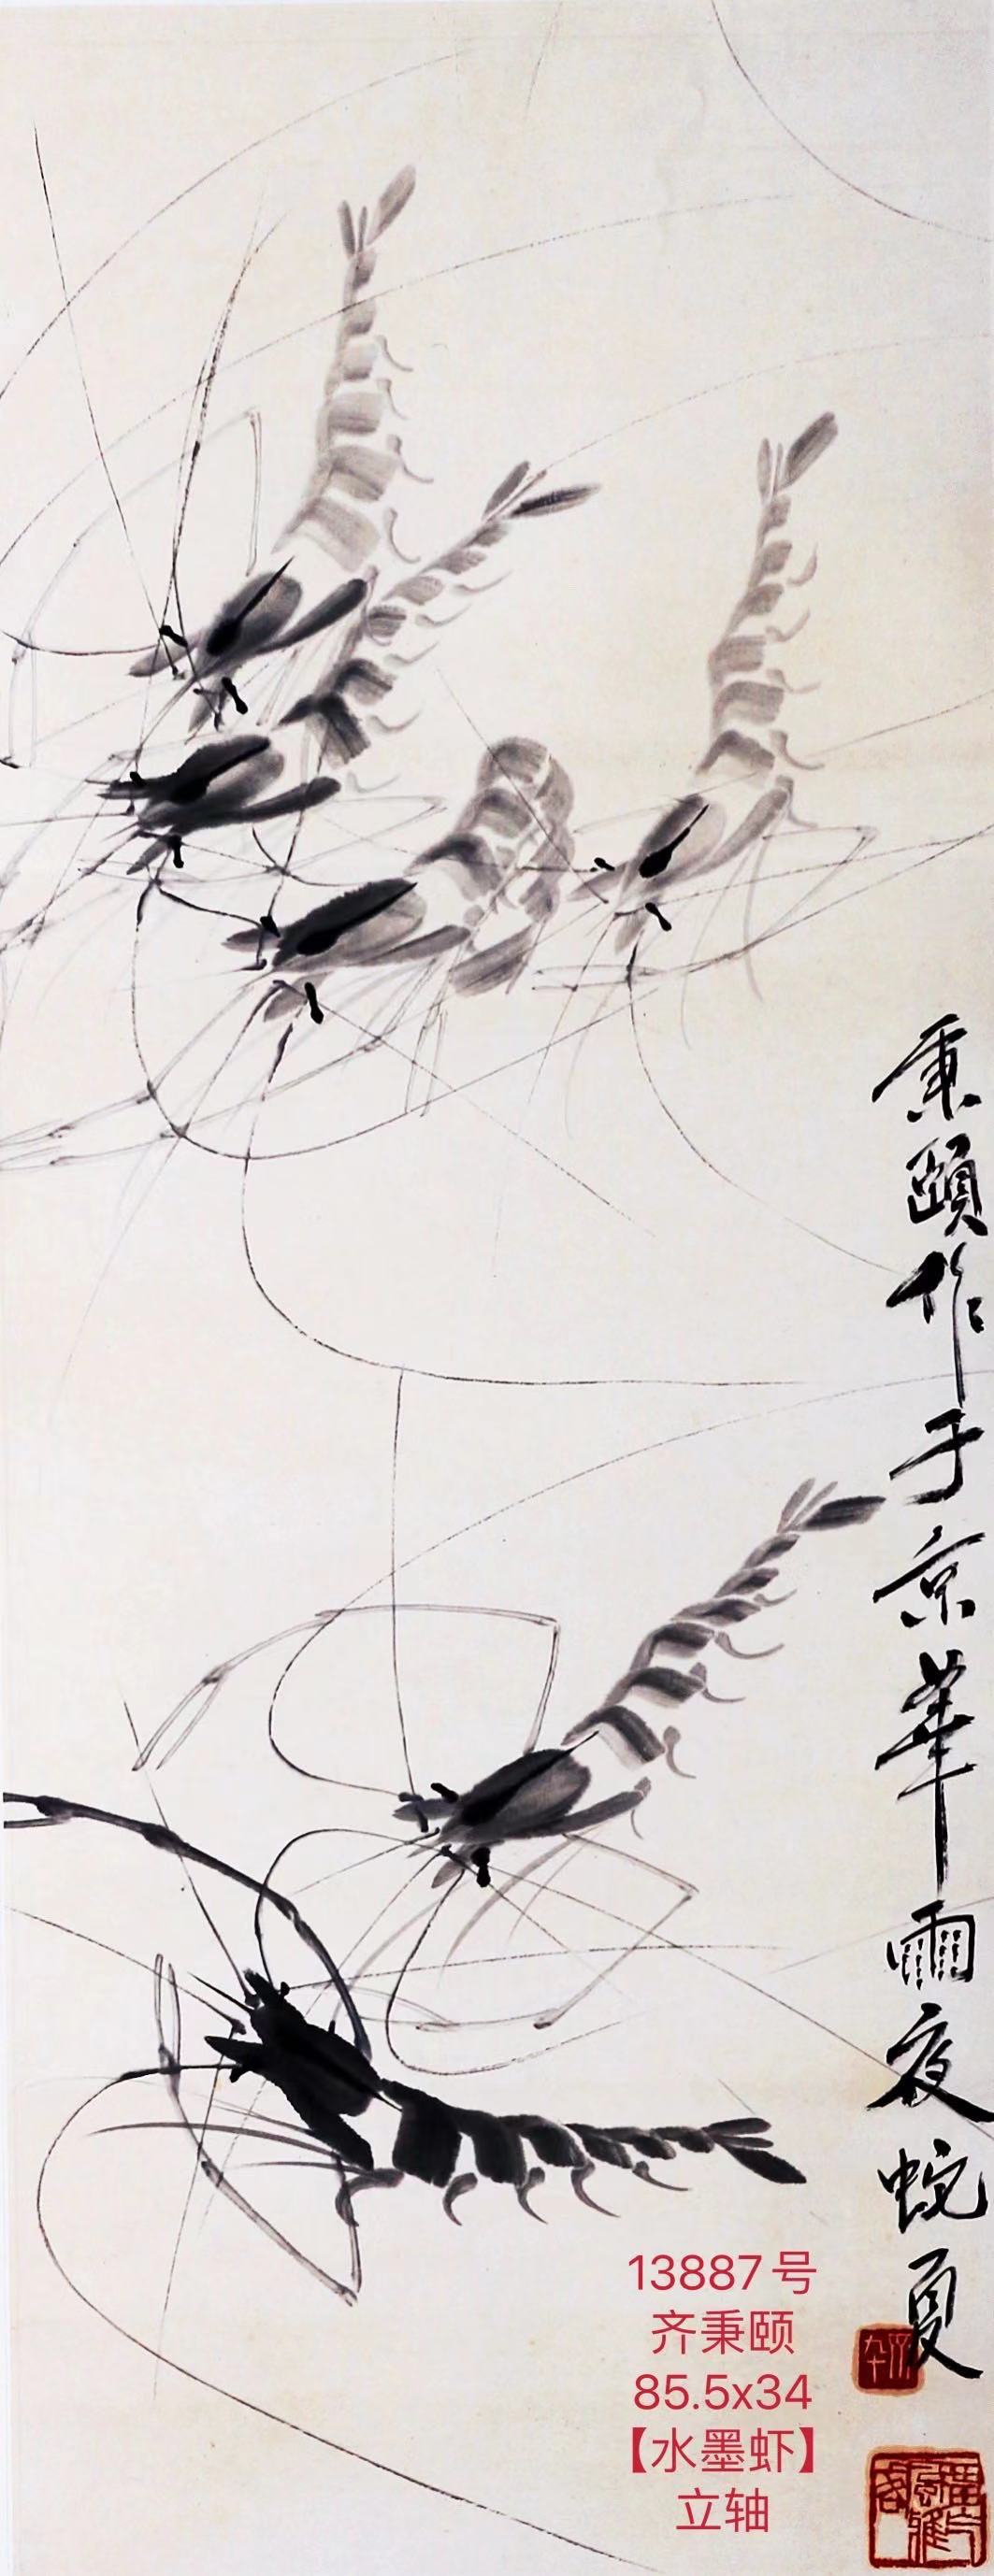 秉頤作于京華雨夜蛻夏
13887号
齐秉颐
85.5x34
【水墨虾】
立轴